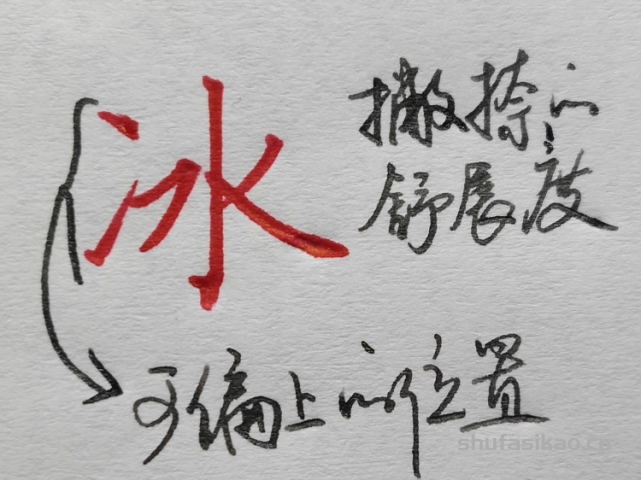 冰
撇捺的
舒展度
可偏上的位置
shufasikao.co